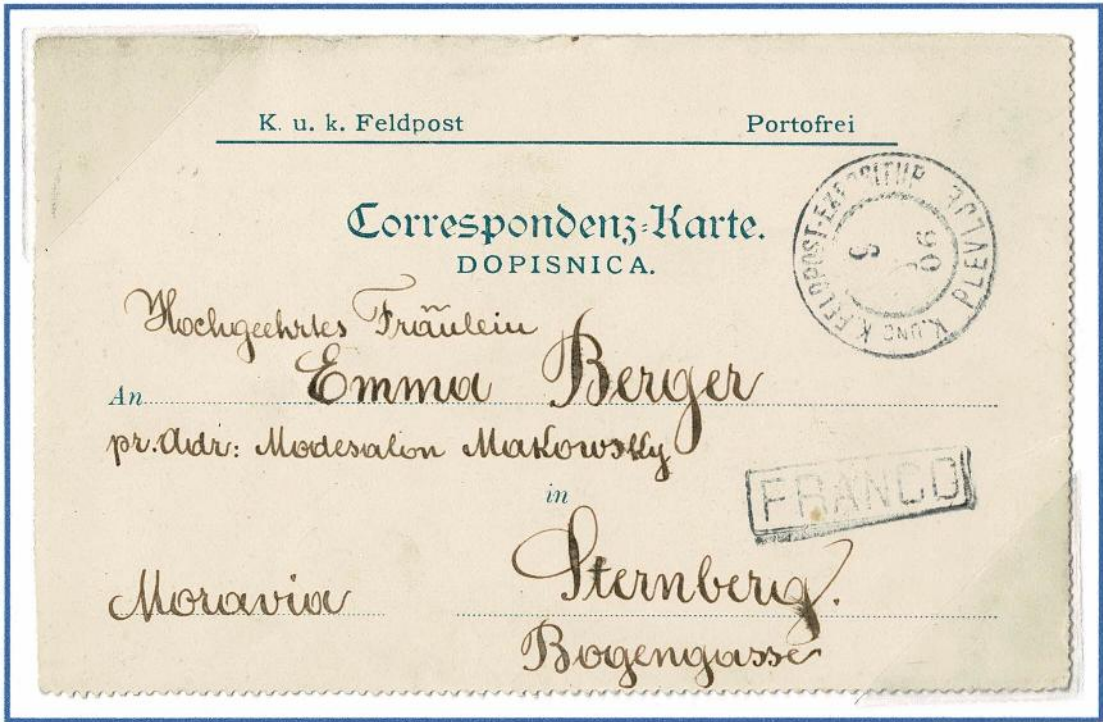 K. u. k. Feldpost Portofrei
Correspondenz-Karte.
DOPISNICA.
K. UND K. FELDPOST-EXPOSITUR PLEVLJE
6
06
Hochgeehrtes Fräulein
An Emma Berger
pr. Adr: Modesalon Makowsky
in
FRANCO
Moravia Sternberg.
Bogengasse